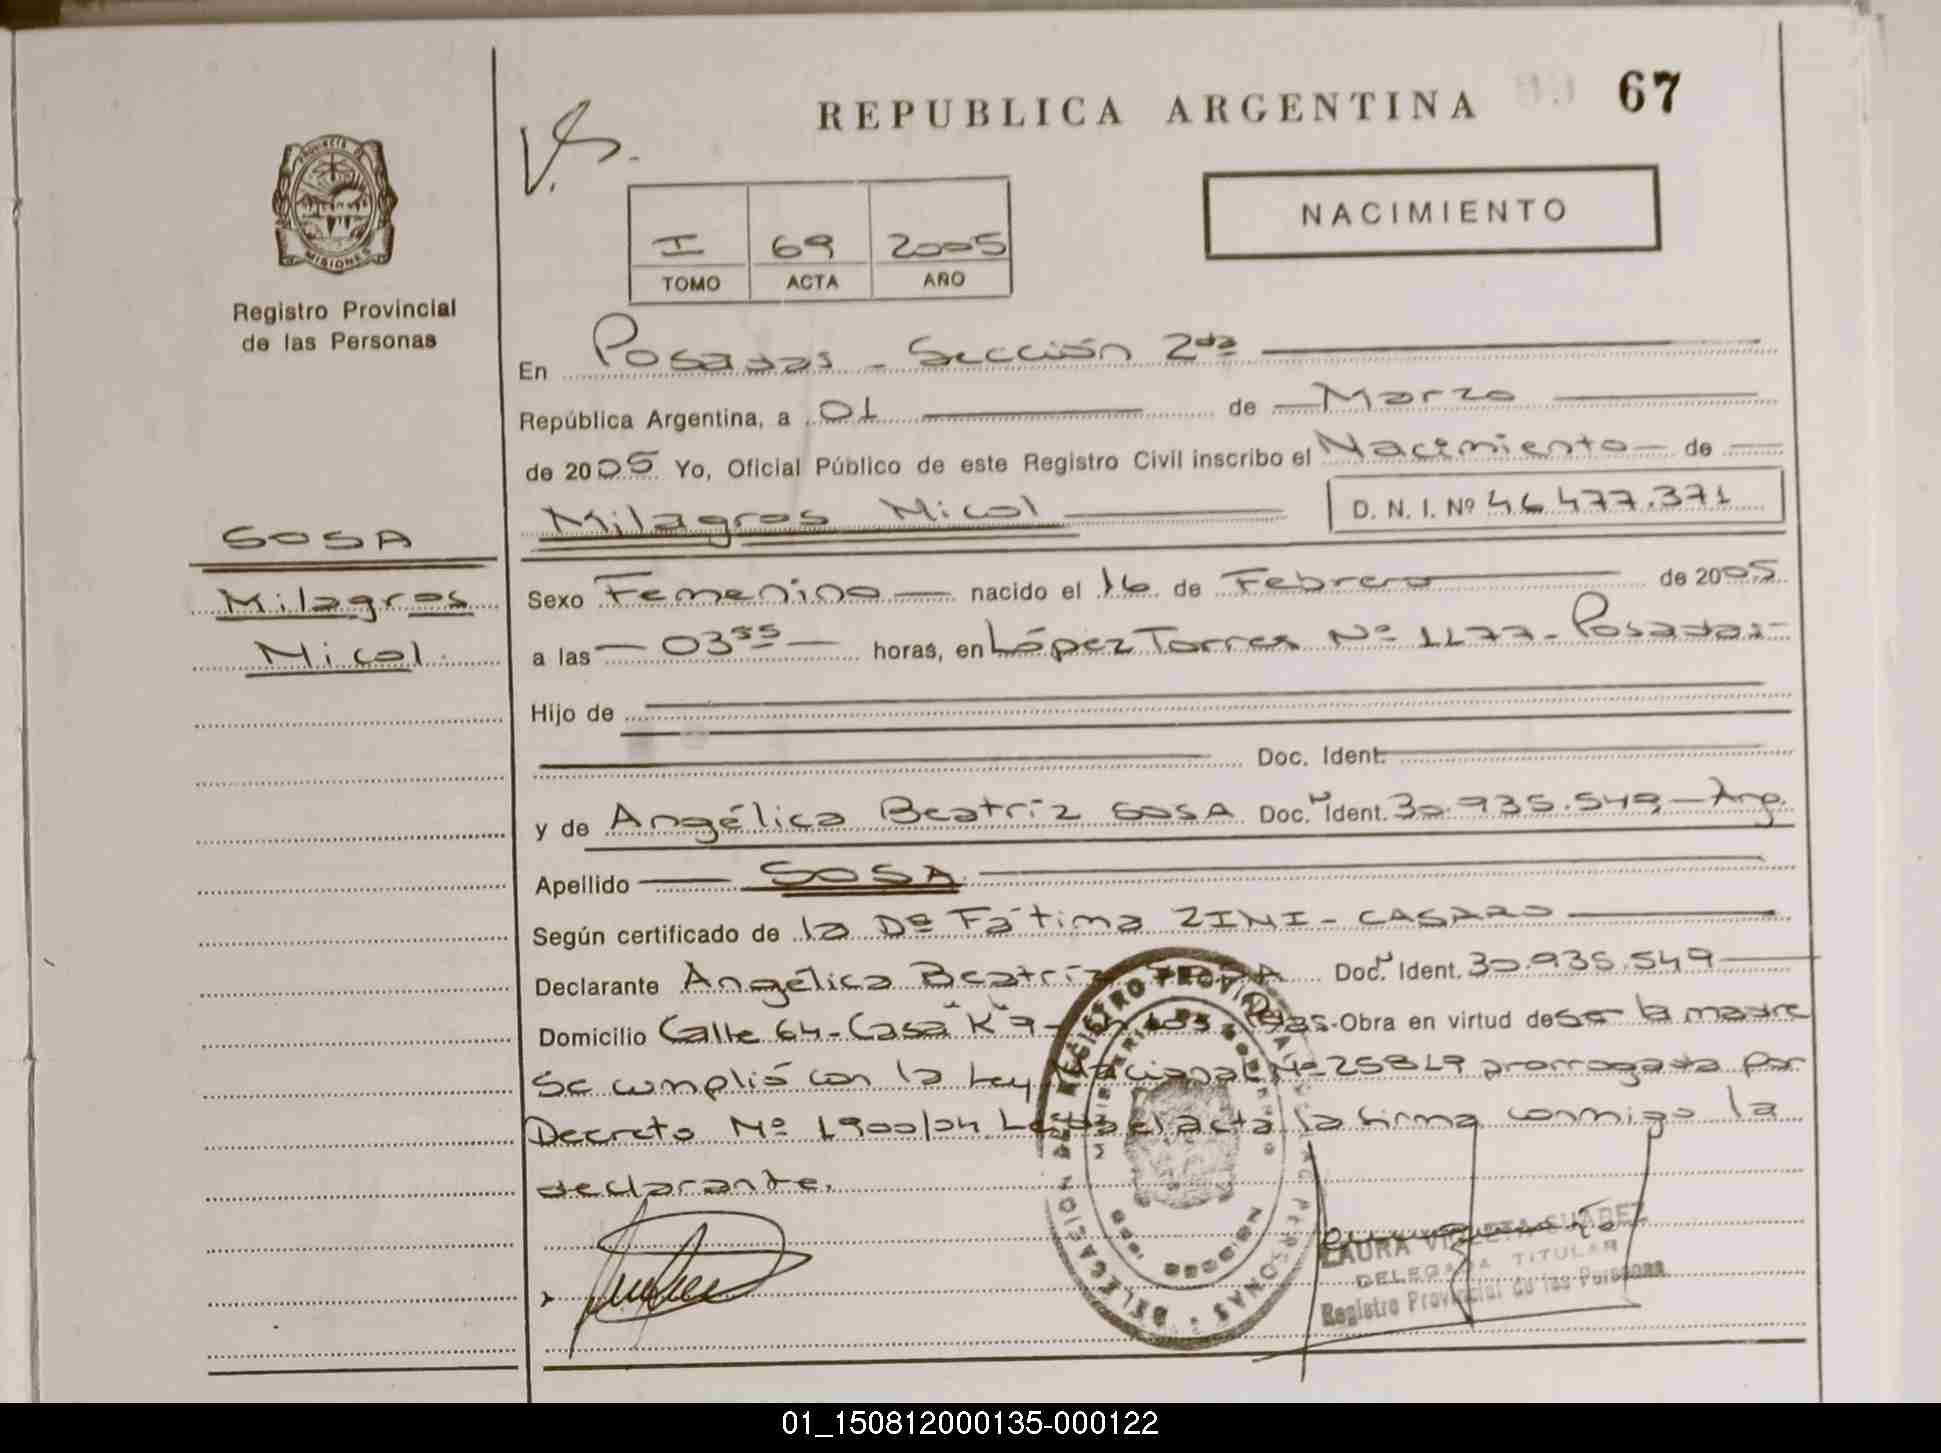 REPUBLICA ARGENTINA 67
V.S.
NACIMIENTO
PROVINCIA DE
MISIONES
Registro Provincial
de las Personas
I 69 2005
TOMO ACTA AÑO
En Posadas - Sección 2da
República Argentina, a 01 de Marzo
de 2005 Yo, Oficial Público de este Registro Civil inscribo el Nacimiento de
Milagros Nicol D. N. I. Nº 46.477.371
SOSA
Milagros
Nicol
Sexo Femenino nacido el 16 de Febrero de 2005
a las 03 55 horas, en López Torres Nº 1177 - Posadas -
Hijo de
Doc. Ident.
y de Angélica Beatríz SOSA Doc. N Ident. 30.935.549 - Arg.
Apellido SOSA
Según certificado de la Dra Fátima ZINI - CASARO
Declarante Angélica Beatríz SOSA Doc. N Ident. 30.935.549
Domicilio Calle 64 - Casa "K" 9 - Ch 103 - Pdas - Obra en virtud de ser la madre
Se cumplió con la Ley Nacional Nº 25819 prorrogada por
Decreto Nº 1900/04. Leída el acta la firma conmigo la
declarante.
REGISTRO PROVINCIAL DE LAS PERSONAS
DELEGACION
MISIONES
LAURA VIOLETA SUAREZ
DELEGADA TITULAR
Registro Provincial de las Personas
01_150812000135-000122